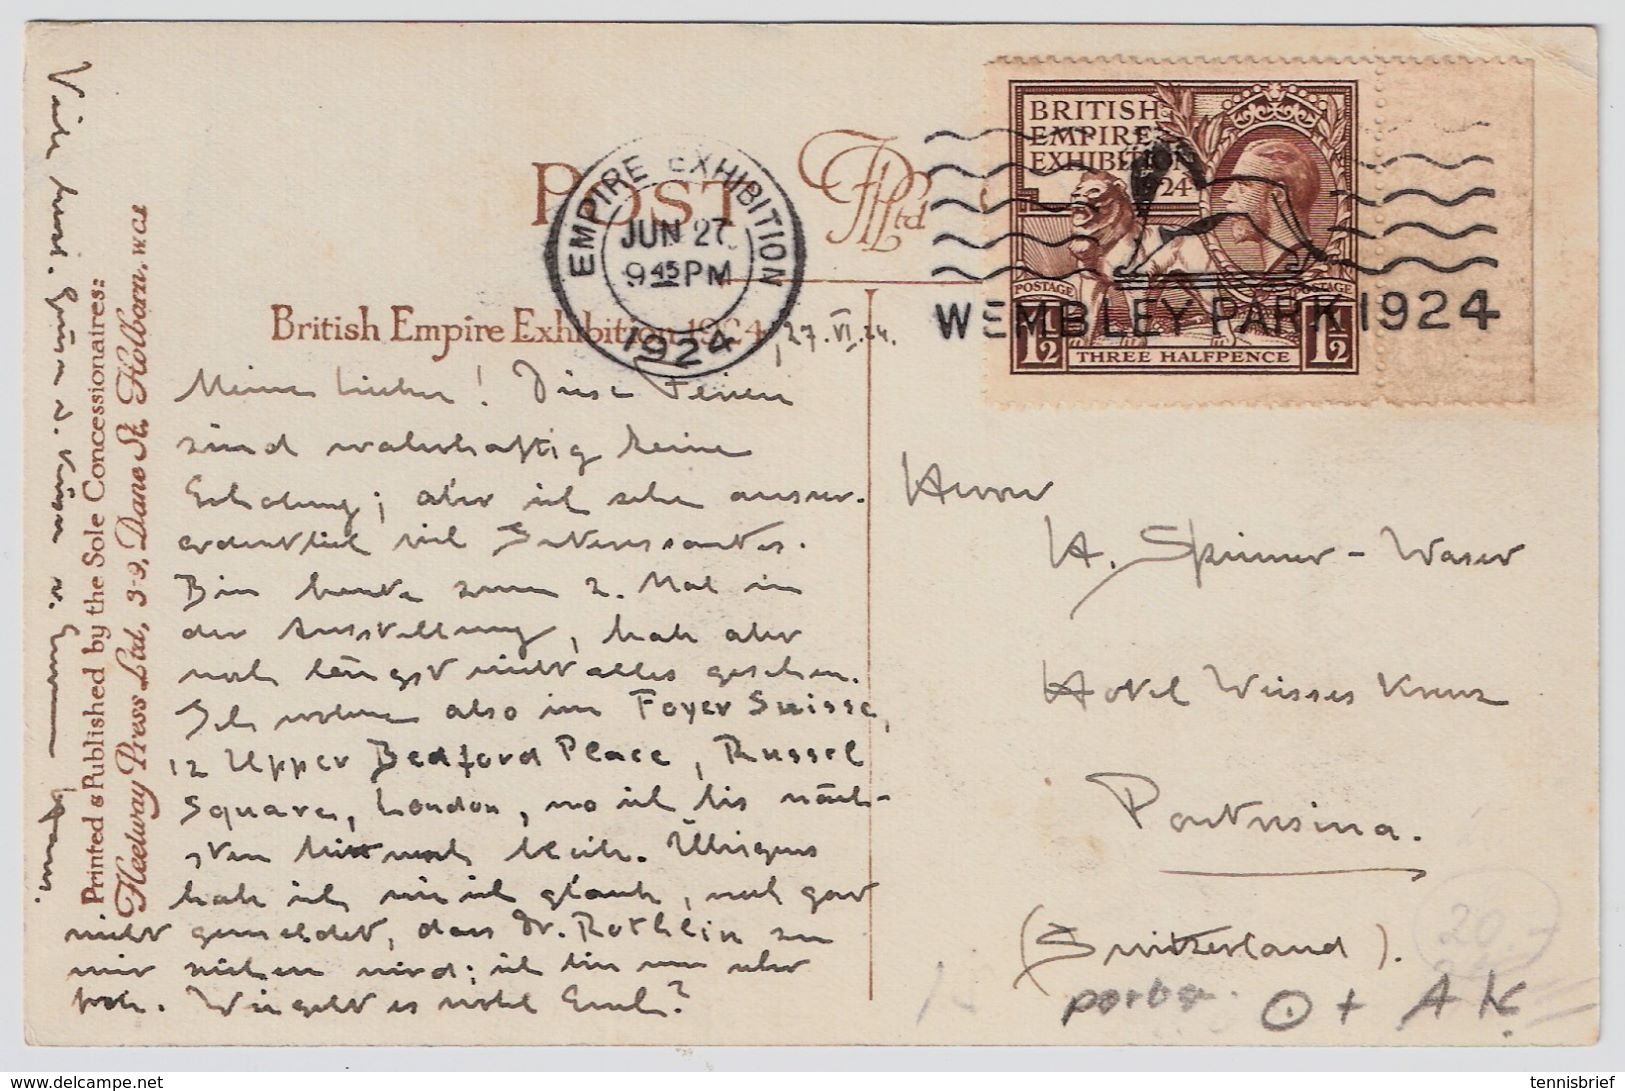 POST
FPLtd
EMPIRE EXHIBITION
JUN 27
9 45 PM
1924
BRITISH
EMPIRE
EXHIBITION
1924
POSTAGE POSTAGE
1½ THREE HALFPENCE 1½
WEMBLEY PARK 1924
British Empire Exhibition 1924, 27. VI. 24.
Meine Lieben! Diese Ferien
sind wahrhaftig keine
Erholung; aber ich sehe ausser-
ordentlich viel Interessantes.
Bin heute zum 2. Mal in
der Ausstellung, habe aber
noch längst nicht alles gesehen.
Ich wohne also im Foyer Suisse,
12 Upper Bedford Place, Russel
Square, London, wo ich bis näch-
sten noch bleibe. Übrigens
habe ich, wie ich glaube, noch gar
nicht gemeldet, dass Dr. Rothlin zu
mir ziehen wird; ich bin nun aber
froh. Wie geht es wohl Emil?
Herrn
H. Spinner-Waser
Hotel Weisses Kreuz
Pontresina.
(Switzerland).
20.-
⊙ + A K
Printed & Published by the Sole Concessionaires:
Fleetway Press Ltd, 3-9, Dane St. Holborn, W.C.1
Grüsse u. Küsse v. Eurem